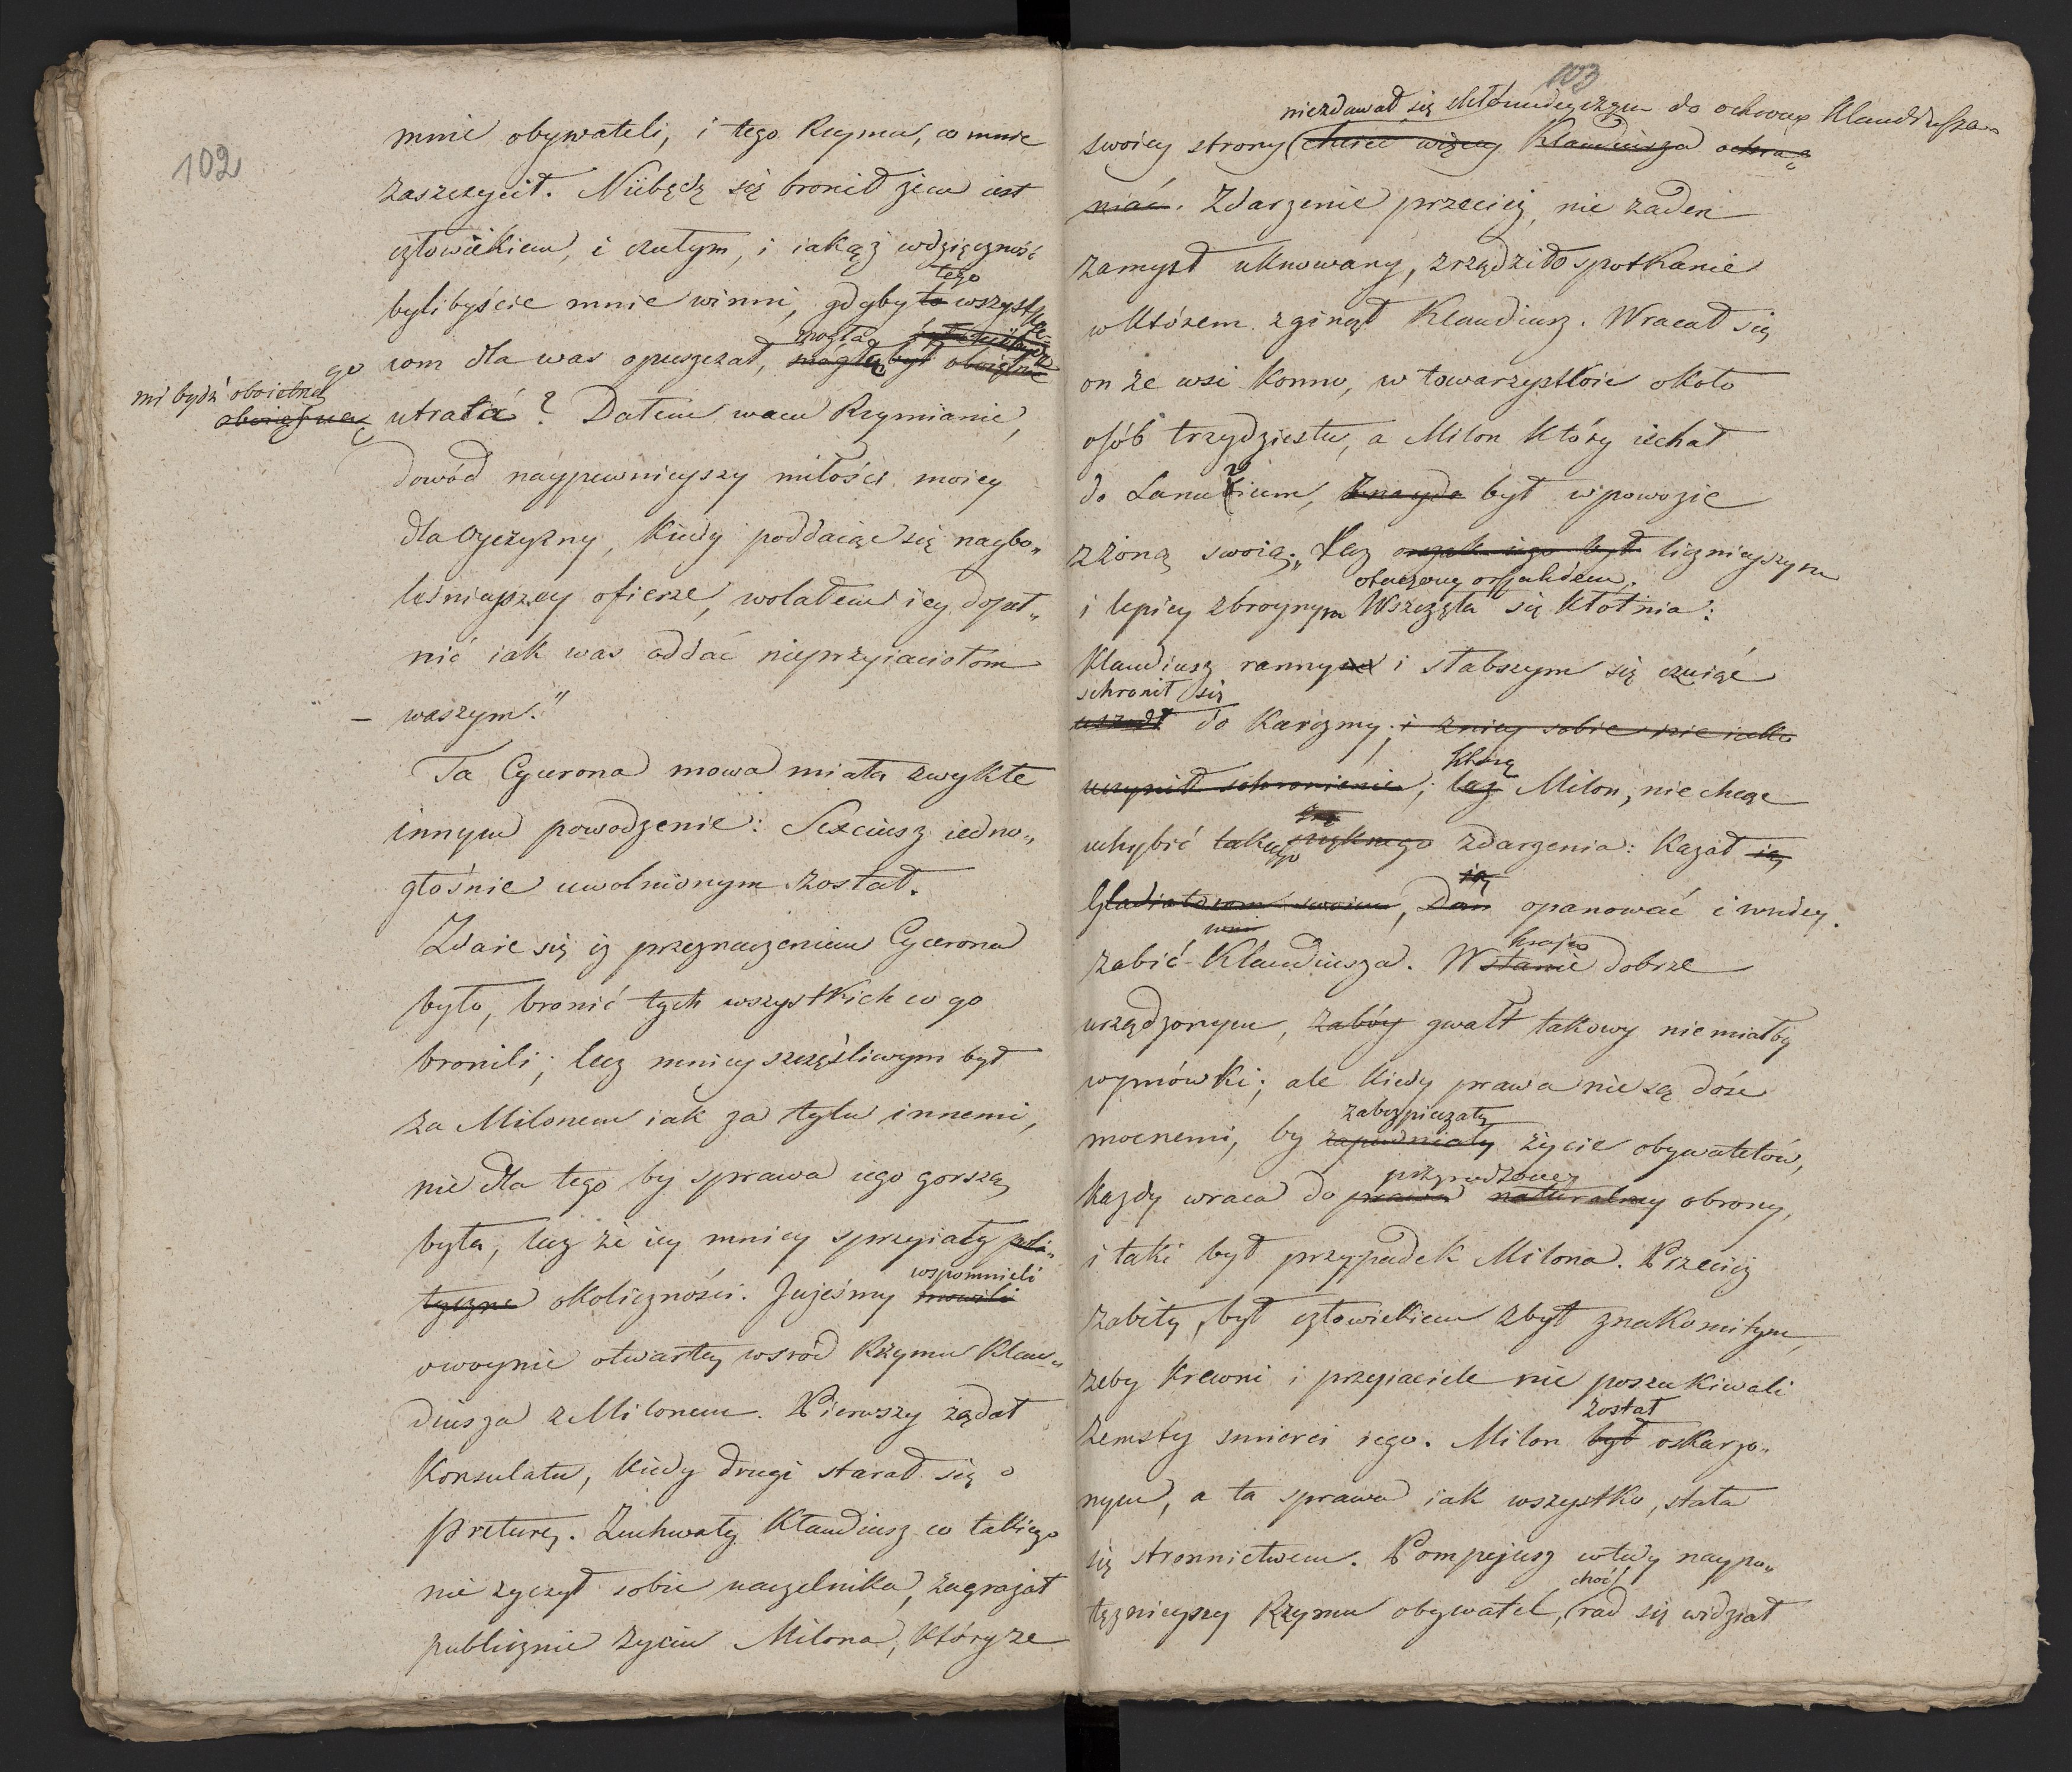 102
mnie obywateli, i tego Rzymu, co mnie
zaszczycił. Niebędę się bronił żem iest
człowiekiem, i czułym, i iakąż wdzięczność
tego
bylibyście mnie winni, gdyby to wszystko
mogła
com dla was opuszczał, mogło być oboiętne
mi bydź oboietną
go
oboiętną utrata? Dałem wam Rzymianie,
dowód naypewnieyszy miłości moiey
dla Oyczyzny, kiedy poddaiąc się naybo„
leśnieyszey ofierze, wolałem iey dopeł„
nić iak was oddać nieprzyiaciołom
– waszym."
Ta Cycerona mowa miała zwykłe
innym powodzenie: Sexciusz iedno„
głośnie uwolnionym został.
Zdaie się iż przeznaczeniem Cycerona
było, bronić tych wszystkich co go
bronili; lecz mniey szczęśliwym był
za Milonem iak za tylu innemi,
nie dla tego by sprawa iego gorszą
była, lecz że iey mniey sprzyiały poli„
wspomnieli
tyczne okoliczności. Jużeśmy mowili
owoynie otwartey wsród Rzymu Klau„
diusza z Milonem. Pierwszy żądał
Konsulatu, kiedy drugi starał się o
Preturę. Zuchwały Klaudiusz co takiego
nie życzył sobie naczelnika, zagrażał
publicznie życiu Milona, który ze
103
niezdawał się do ochrony Klaudiusza
swoiey strony Klaudiusza ochra„
niać. Zdarzenie przecież, nie żaden
zamysł uknowany, zrządziło spotkanie
w którem zginął Klaudiusz. Wracał się
on ze wsi konno, w towarzystwie około
osób trzydziestu, a Milon który iechał
do Lanuvium, był w powozie
z żoną swoią; lecz orszak iego był licznieyszym
otoczony orszakiem.
i lepiey zbroynym Wszczęła się kłótnia:
Klaudiusz rannym i słabszym się czuiąc
schronił się
uszedł do karczmy; i zniey sobie nie iako
którą
uczynił schronienie; lecz Milon, nie chcąc
uchybić takiego zdarzenia: kazał ią
ią
Gladiatorom swoim, Dom opanować i wniey
zabić Klaudiusza. W
kraju
stanie dobrze
urządzonym, zabóy gwałt takowy nie miałby
wymówki; ale kiedy prawa nie są dość
zabezpieczały
mocnemi, by zapewniały życie obywatelów,
przyrodzoney
każdy wraca do prawa naturalney obrony,
i taki był przypadek Milona. Przecież
zabity, był człowiekiem zbyt znakomitym,
żeby krewni i przyiaciele nie poszukiwali
został
zemsty smierci iego. Milon był oskarżo„
nym, a ta sprawa iak wszystko, stała
się stronnictwem. Pompejusz wtedy naypo„
choć
tężnieyszy Rzymu obywatel, rad się widział